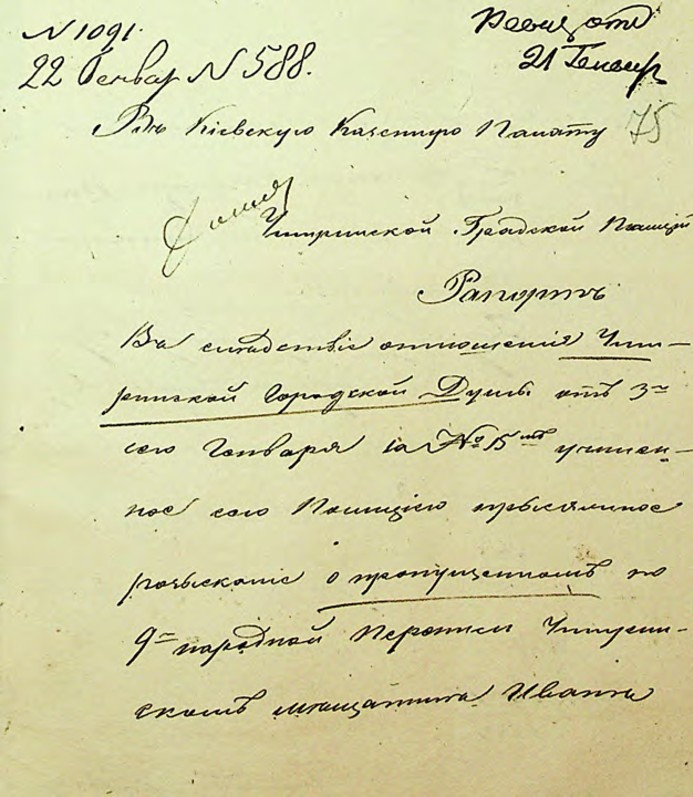 N 1091.
22 Генвар N 588.
Ревиз отд
21 Генвар
Въ Кіевскую Казенную Палату
75
Чигринской Градской Полиціи
Рапортъ
Въ следствіе отношенія Чиг-
ринской Городской Думы отъ 3го
сего Генваря за № 15мъ учинен-
ное сею Полициею присяжное
розысканіе о пропущенномъ по
9й народной Переписи Чигрин-
скомъ мещанине Иване